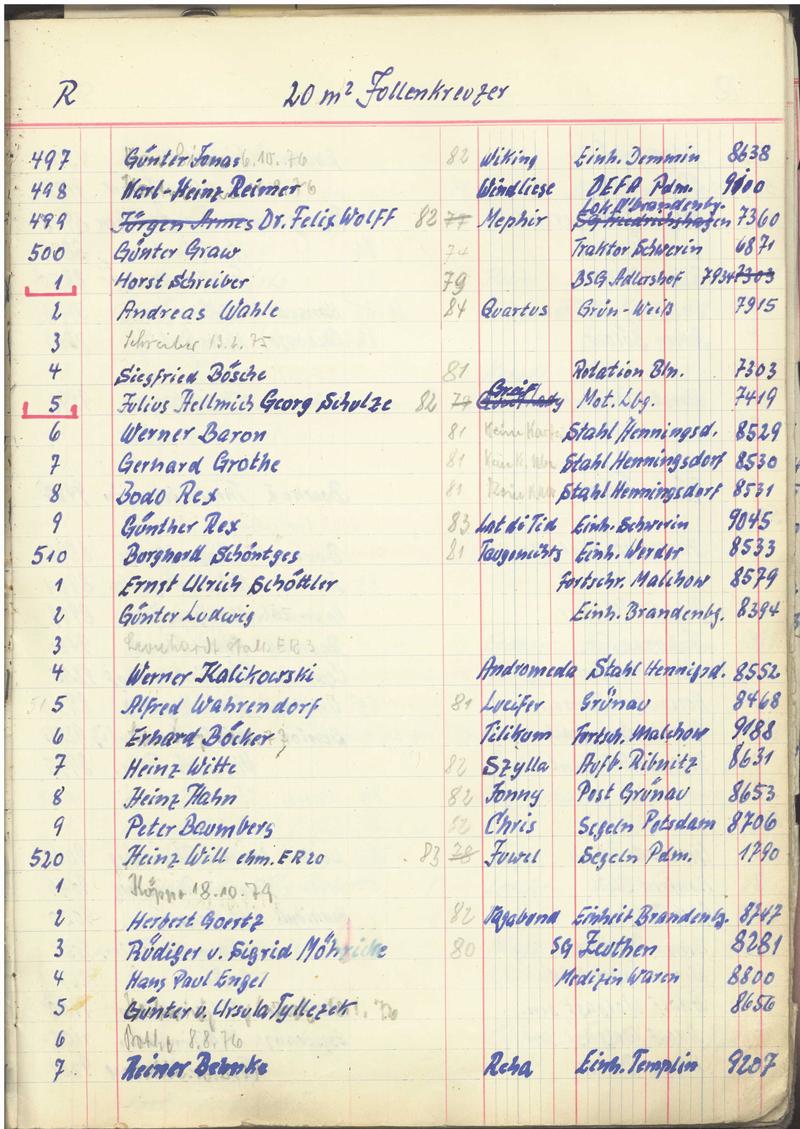 R 20 m² Jollenkreuzer
497 Günter Jonas 6.10.76 82 Wiking Einh. Demmin 8638
498 Karl-Heinz Reimer Windliese DEFA Pdm. 9100
499 Jürgen Dr. Felix Wolff 82 77 Mephir Lok. Brandenbg. SG Friedrichshagen 7360
500 Günter Graw 74 Traktor Schwerin 6871
1 Horst Schreiber 79 BSG Adlershof 7934 7303
2 Andreas Wahle 84 Quartus Grün-Weiß 7915
3 Schreiber 13.2.75
4 Siegfried Bösche 81 Rotation Bln. 7303
5 Julius Hellmich Georg Schulze 82 79 Greif Mot. Lbg. 7419
6 Werner Baron 81 Keine Stahl Henningsd. 8529
7 Gerhard Grothe 81 Stahl Henningsdorf 8530
8 Bodo Rex 81 Stahl Henningsdorf 8531
9 Günther Rex 83 Lat di Tid Einh. Schwerin 9045
510 Borghard Schöntges 81 Taugenichts Einh. Werder 8533
1 Ernst Ulrich Schöttler Fortschr. Malchow 8579
2 Günter Ludwig Einh. Brandenbg. 8394
3 Leonhardt ER 3
4 Werner Kalikowski Andromeda Stahl Hennigsd. 8552
5 Alfred Wahrendorf 81 Lucifer Grünau 8468
6 Erhard Böcker Tilikum Fortsch. Malchow 9188
7 Heinz Witte 82 Szylla Aufb. Ribnitz 8631
8 Heinz Hahn 82 Jonny Post Grünau 8653
9 Peter Baumberg 82 Chris Segeln Potsdam 8706
520 Heinz Will ehm. ER20 83 78 Juwel Segeln Pdm. 1790
1 Köppe 18.10.79
2 Herbert Goertz 82 Vagabund Einheit Brandenbg. 8747
3 Rüdiger u. Sigrid Möhricke 80 SG Zeuthen 8281
4 Hans Paul Engel Medizin Waren 8800
5 Günter u. Ursula Tyllezek 8656
6 8.8.76
7 Reiner Behnke Reha Einh. Templin 9207